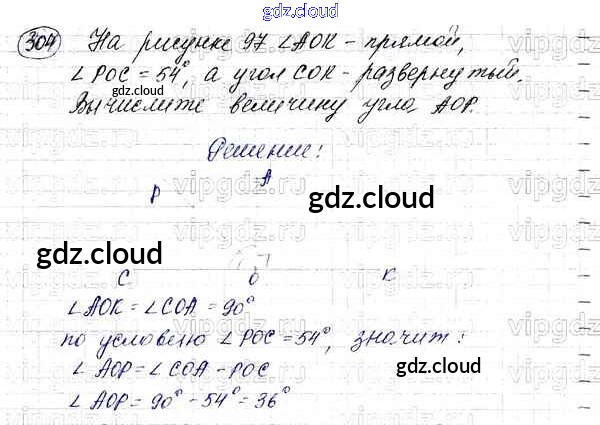 gdz.cloud
304 На рисунке 97 ∠AOK - прямой,
∠POC = 54°, а угол COK - развернутый.
gdz.cloud
Вычислите величину угла AOP.
Решение:
vipgdz.ru
A
P
gdz.cloud
gdz.cloud
C O K
∠AOK = ∠COA = 90°
по условию ∠POC = 54°, значит:
∠AOP = ∠COA - POC
gdz.cloud
∠AOP = 90° - 54° = 36°